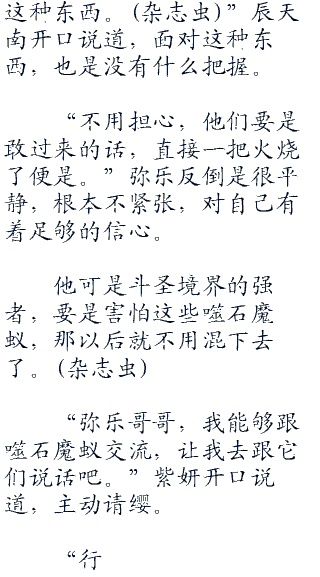 这种东西。(杂志虫)”辰天
南开口说道，面对这种东
西，也是没有什么把握。
“不用担心，他们要是
敢过来的话，直接一把火烧
了便是。”弥乐反倒是很平
静，根本不紧张，对自己有
着足够的信心。
他可是斗圣境界的强
者，要是害怕这些噬石魔
蚁，那以后就不用混下去
了。(杂志虫)
“弥乐哥哥，我能够跟
噬石魔蚁交流，让我去跟它
们说话吧。”紫妍开口说
道，主动请缨。
“行